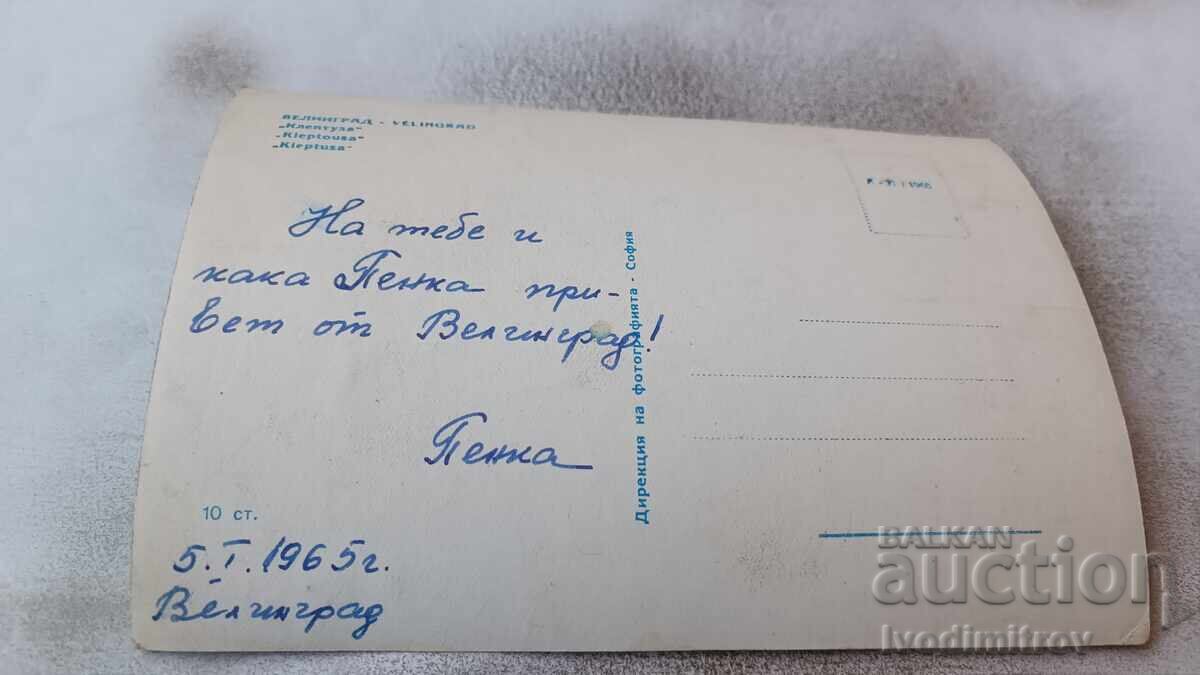 ВЕЛИНГРАД - VÉLINGRAD
„Клептуза“
„Kleptouza“
„Kleptuza“
На тебе и
кака Пенка при-
вет от Велинград!
Пенка
10 ст.
5.I.1965г.
Велинград
Дирекция на фотографията - София
BALKAN
auction
Ivodimitrov